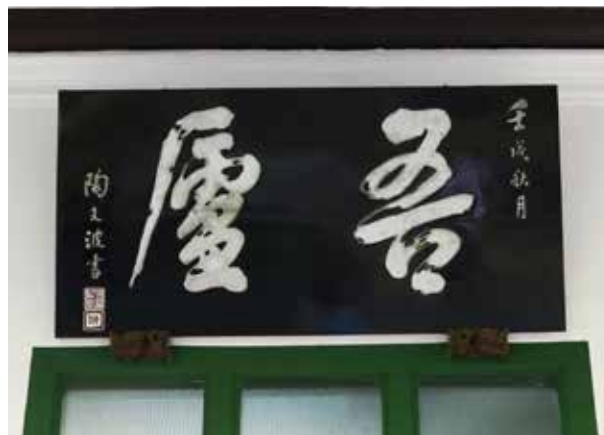 壬戌秋月
吾廬
陶文波書